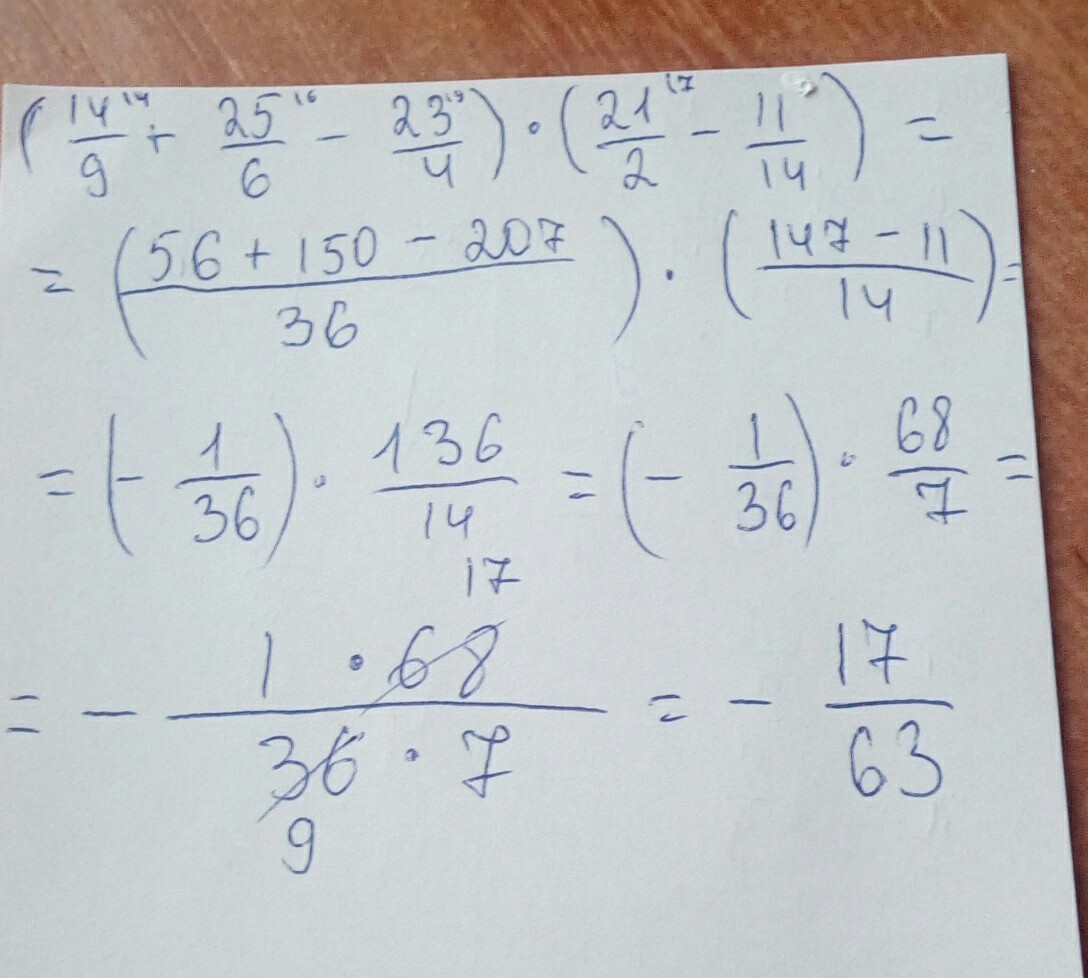 (14/9 + 25/6 - 23/4) · (21/2 - 11/14) =
= (56 + 150 - 207 / 36) · (147 - 11 / 14) =
= (- 1/36) · 136/14 = (- 1/36) · 68/7 =
17
= - 1 · 68 / 36 · 7 = - 17/63
9